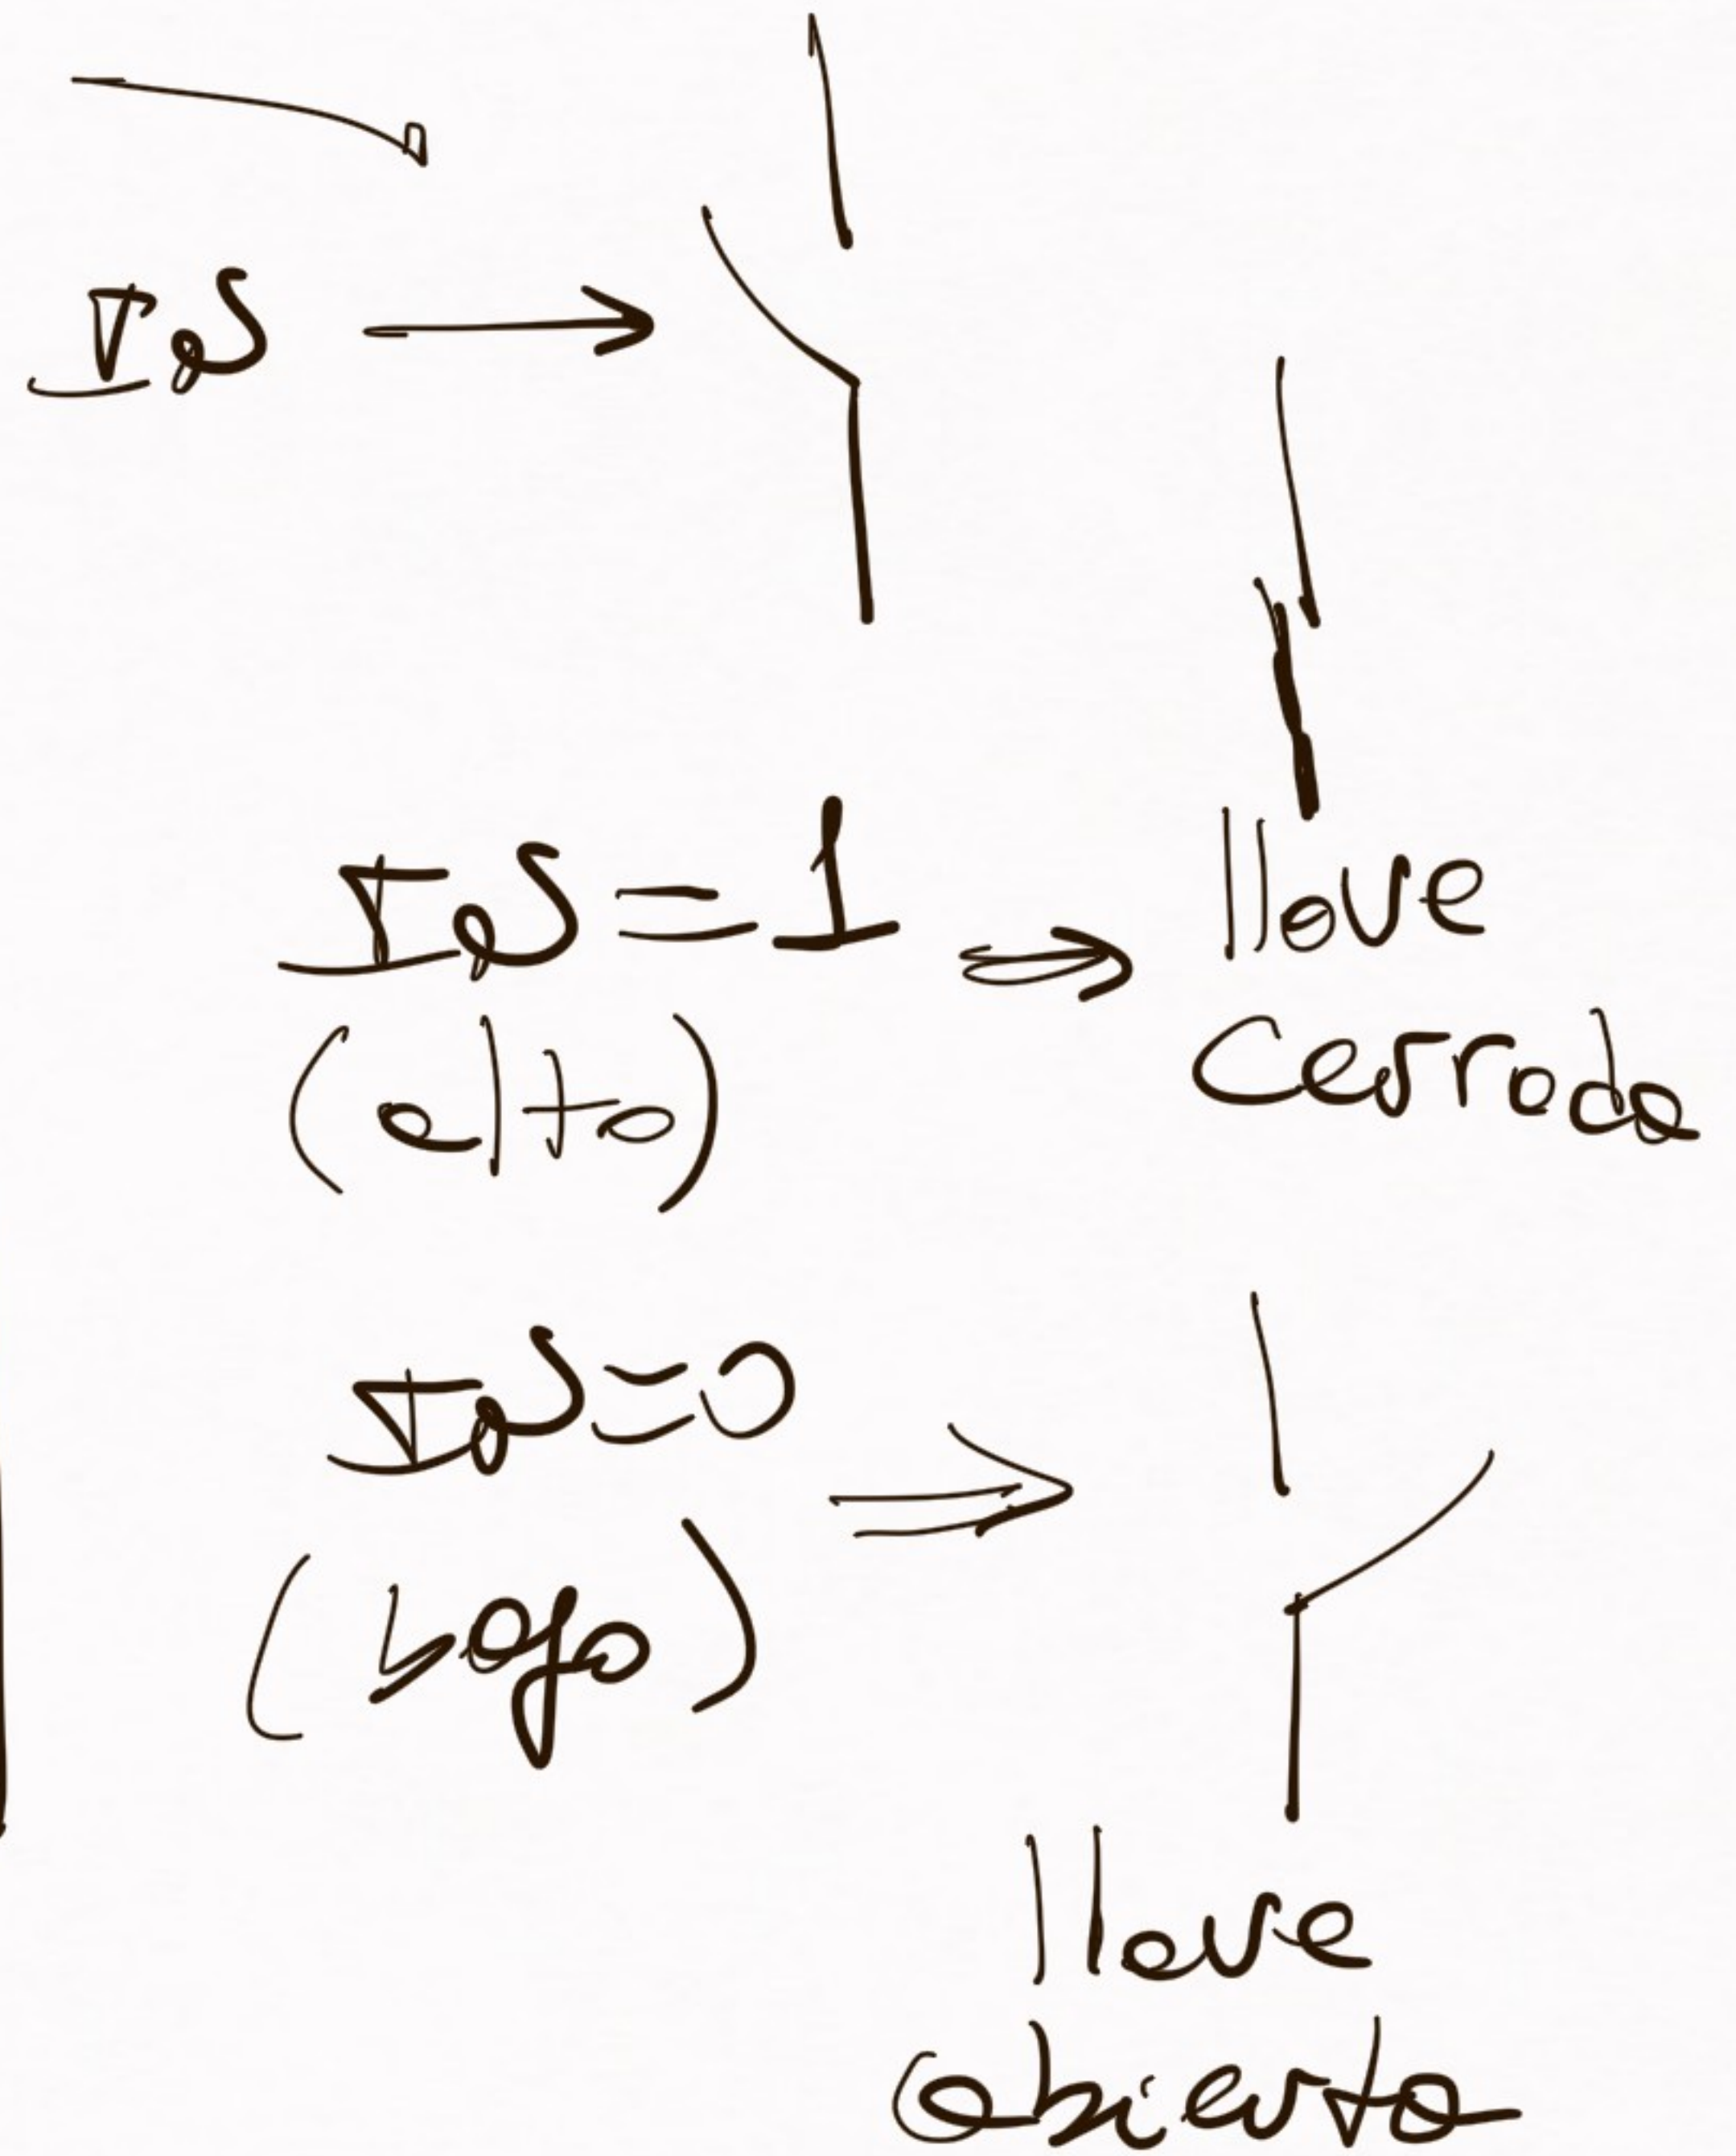 IS
IS = 1 ⇒ llave
cerrada
(alto)
IS = 0 ⇒
(bajo)
llave
abierta